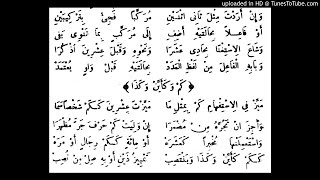 uploaded in HD @ TunesToTube.com
وَإِنْ أَرَدْتَ مِثْلَ ثَانِي اثْنَيْنِ مُرَكَّبًا فَجِئْ بِتَرْكِيبَيْنِ
أَوْ فَاعِلًا بِحَالَتَيْهِ أَضِفِ إِلَى مُرَكَّبٍ بِمَا تَنْوِي يَفِي
وَشَاعَ الِاسْتِغْنَا بِحَادِي عَشَرَا وَنَحْوِهِ وَقَبْلَ عِشْرِينَ اذْكُرَا
وَبَابِهِ الْفَاعِلَ مِنْ لَفْظِ الْعَدَدْ بِحَالَتَيْهِ قَبْلَ وَاوٍ يُعْتَمَدْ
﴿ كَمْ وَكَأَيِّنْ وَكَذَا ﴾
مَيِّزْ فِي الِاسْتِفْهَامِ كَمْ بِمِثْلِ مَا مَيَّزْتَ عِشْرِينَ كَكَمْ شَخْصًا سَمَا
وَأَجِزَ انْ تَجُرَّهُ مِنْ مُضْمَرَا إِنْ وَلِيَتْ كَمْ حَرْفَ جَرٍّ مُظْهَرَا
وَاسْتَعْمِلَنْهَا مُخْبِرًا كَعَشَرَهْ أَوْ مِائَةٍ كَكَمْ رِجَالٍ أَوْ مَرَهْ
كَكَمْ كَأَيِّنْ وَكَذَا وَيَنْتَصِبْ تَمْيِيزُ ذَيْنِ أَوْ بِهِ صِلْ مِنْ تُصِبْ